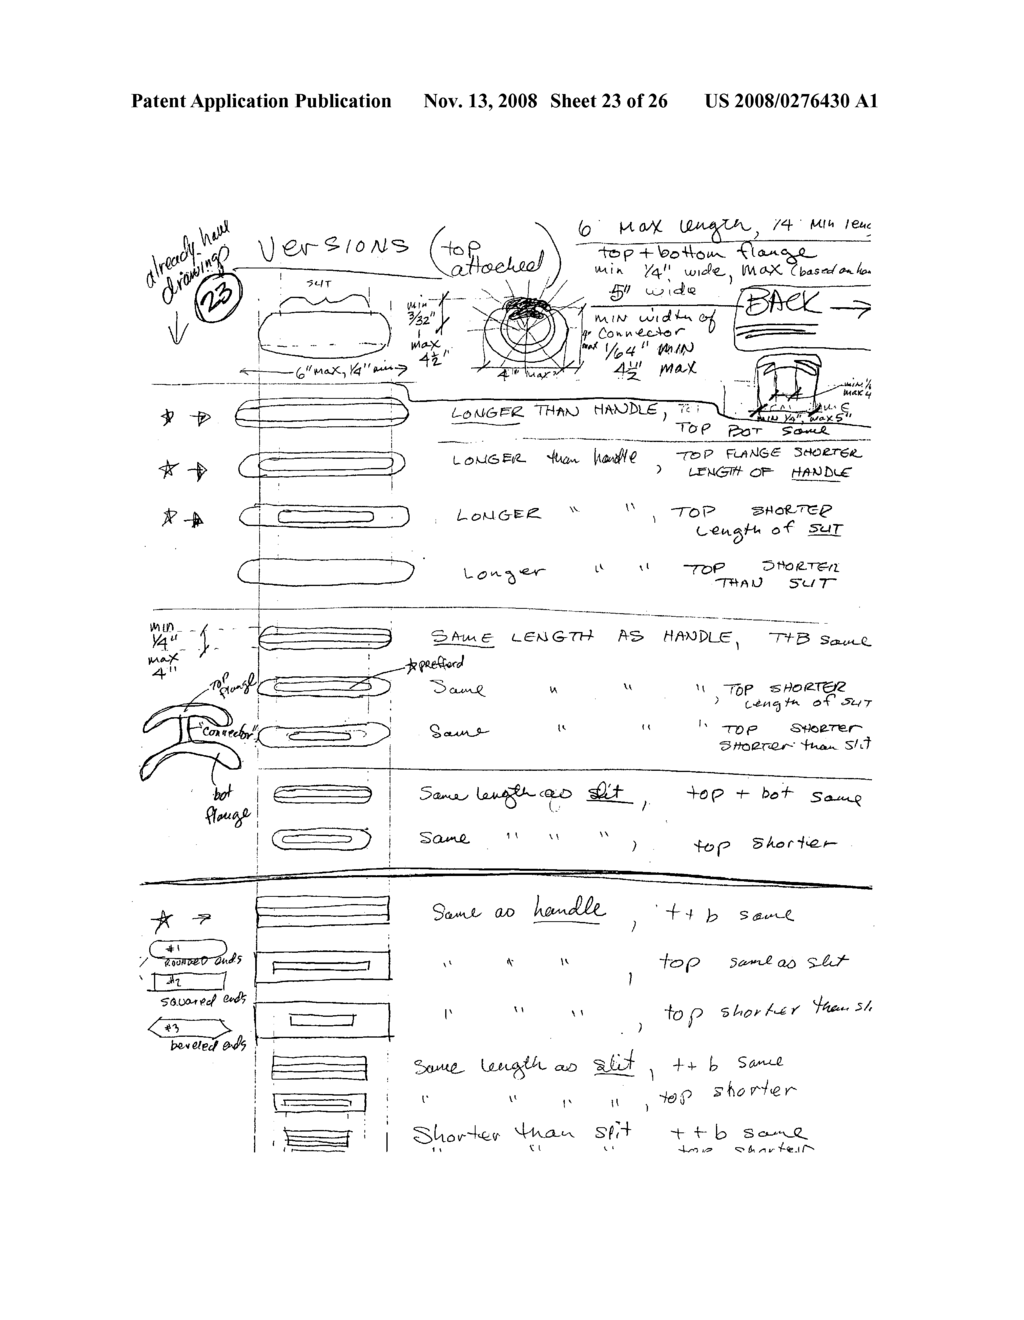 Patent Application Publication Nov. 13, 2008 Sheet 23 of 26 US 2008/0276430 A1
already have
drawings
23
VERSIONS (top
attached)
6" Max length, 1/4" Min
top + bottom flange
min 1/4" wide, MAX (based on
5" wide
BACK
SLIT
min
3/32"
max
4 1/2"
MIN width of
Connector
1/64" MIN
4 1/2" max
6" max, 1/4" min
4" max
min
max 4
MIN 1/4", max 5"
LONGER THAN HANDLE,
TOP BOT Same
LONGER than handle, TOP FLANGE SHORTER
LENGTH OF HANDLE
LONGER " ", TOP SHORTER
Length of SLIT
Longer " " TOP SHORTER
THAN SLIT
min
1/4"
max
4"
SAME LENGTH AS HANDLE, T+B Same
Top
flange
Same " " ", TOP SHORTER
Length of SLIT
"connector"
Same " " " TOP SHORTER
SHORTER than slit
bot
flange
Same length as slit, top + bot same
Same " " ", top shorter
Same as handle, t + b same
#1
ROUNDED ends
" " ", top same as slit
#2
squared ends
" " ", top shorter than
#3
beveled ends
Same length as slit, t + b same
" " " ", top shorter
Shorter than split t + b same
" " " top shorter